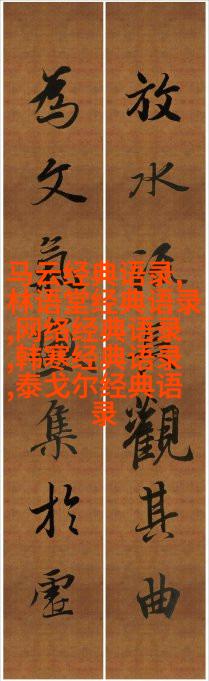 放水觀其曲
為文氣集於虛
马云经典语录,
林语堂经典语录
,网络经典语录
,韩寒经典语录
,泰戈尔经典语
录